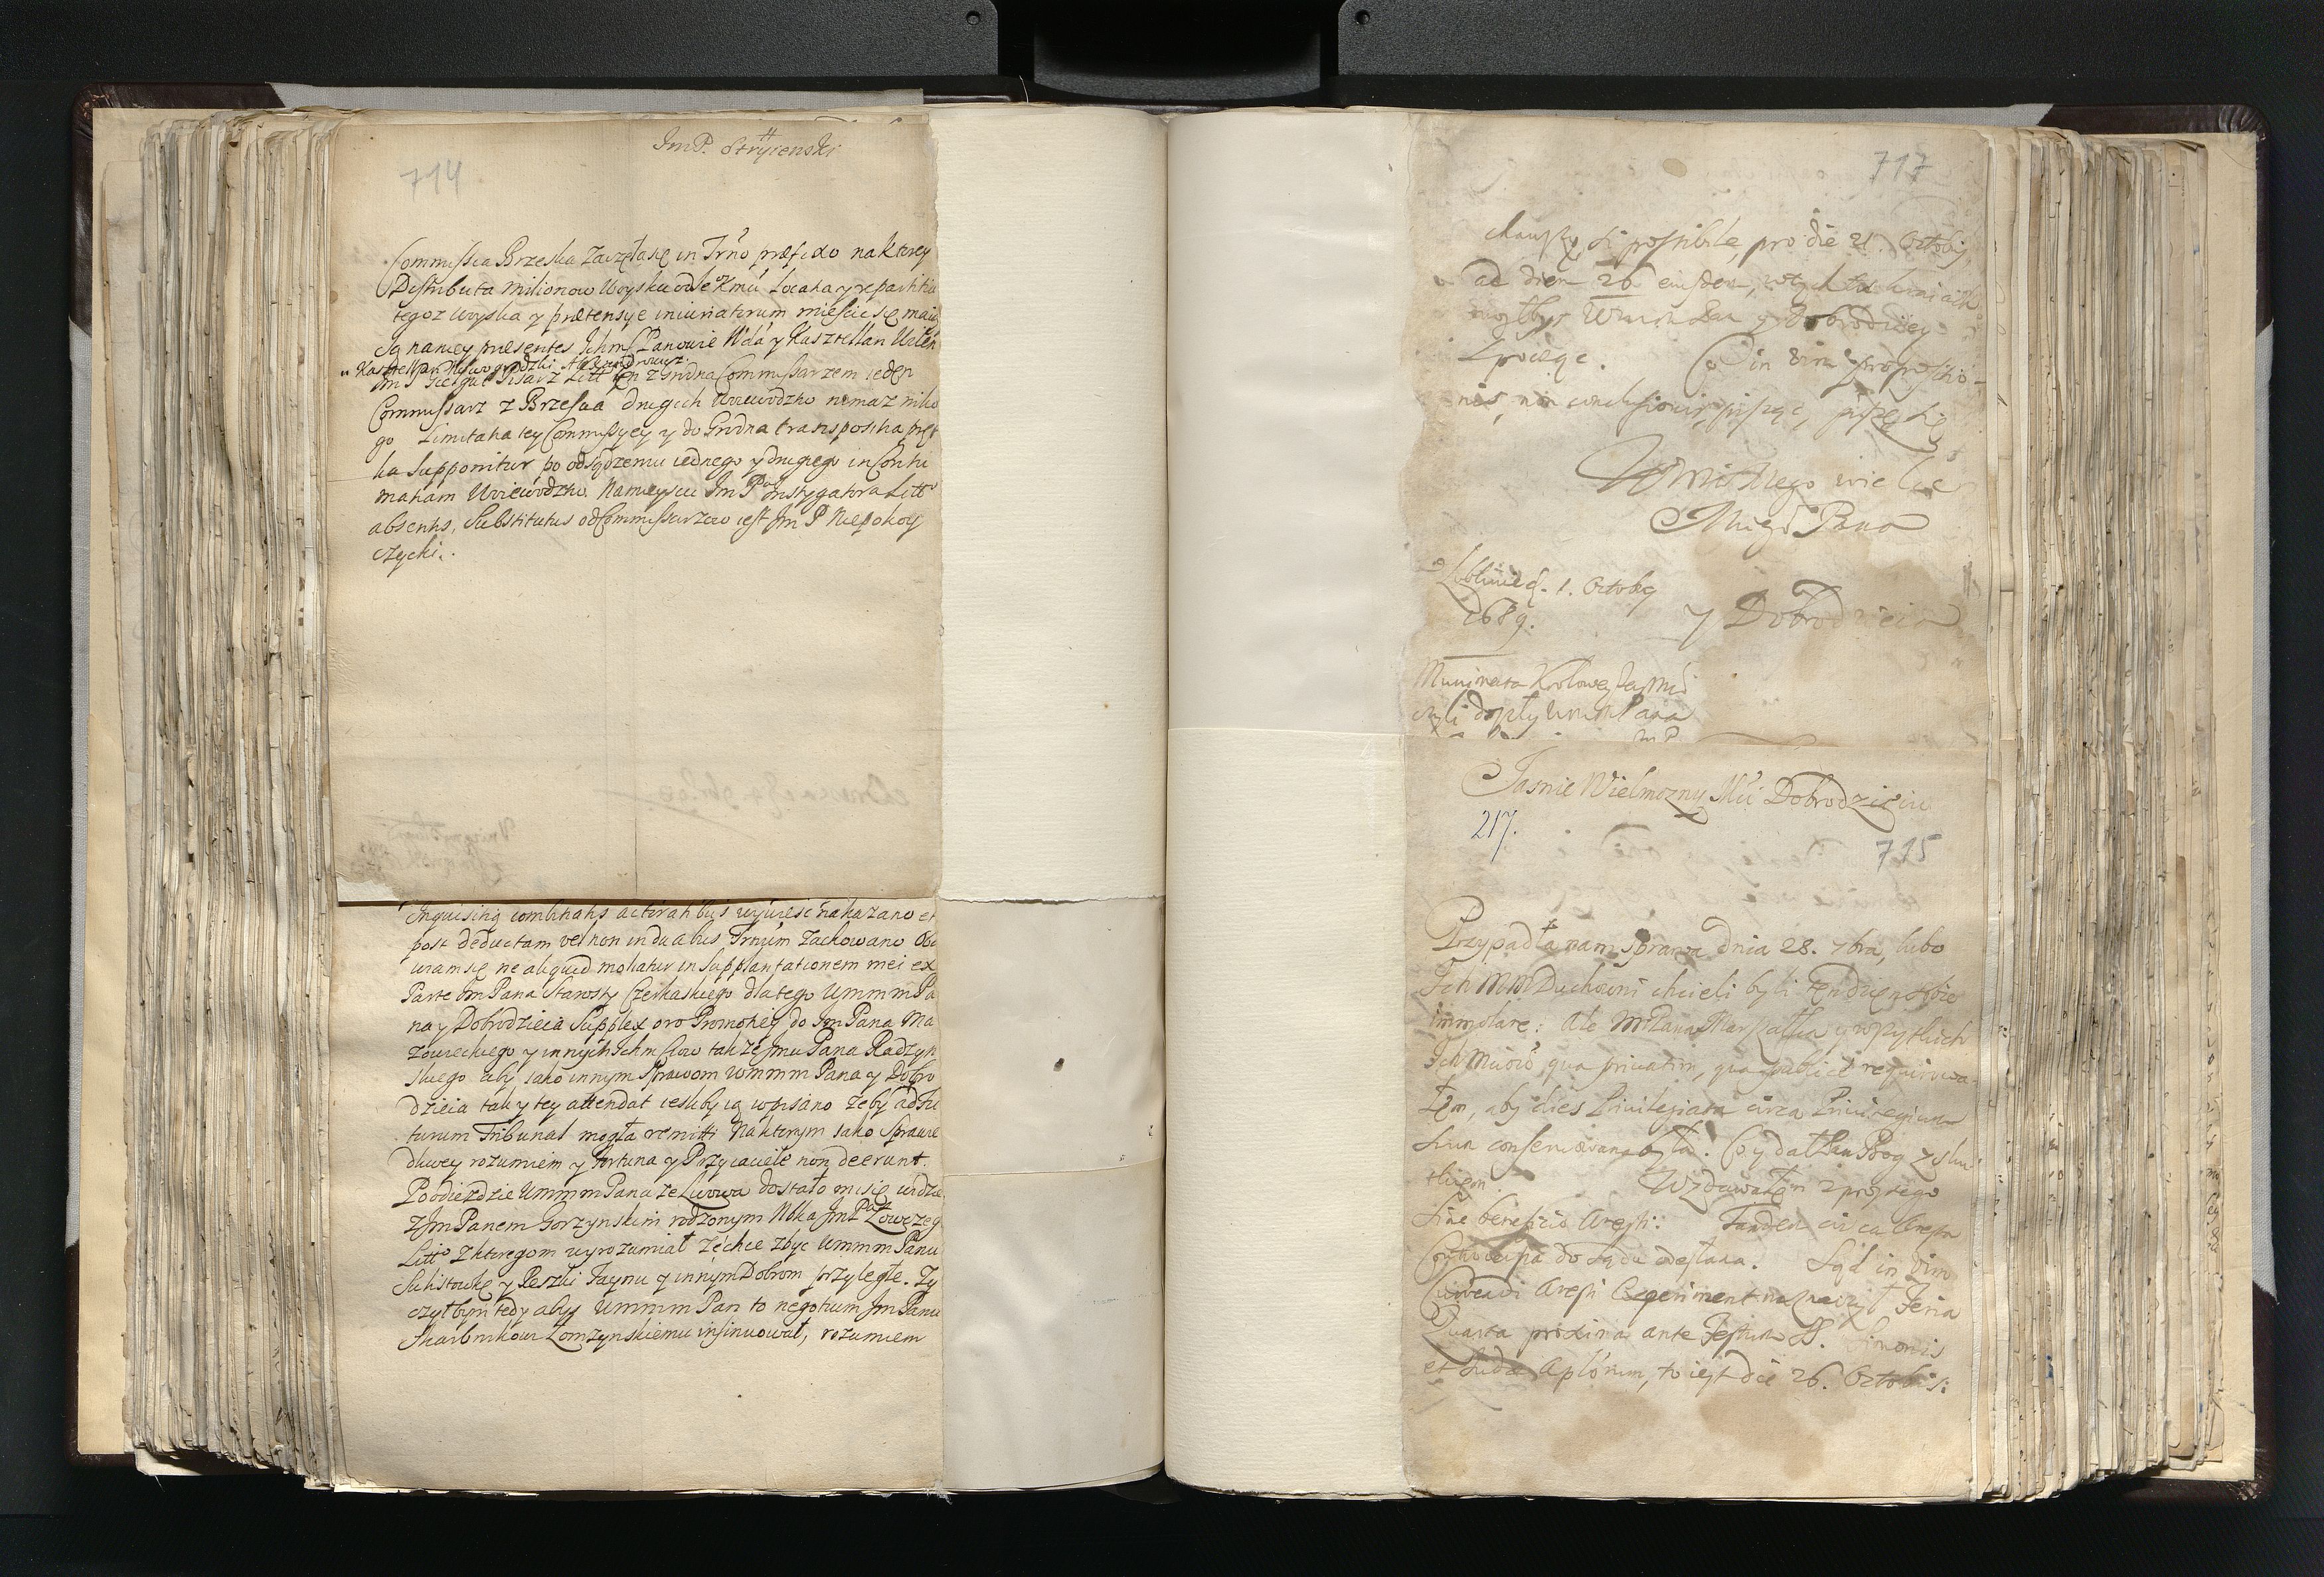 ImP. Stryienski
714
Commissia Brzeska Zaczęła się in Trno præfixo na ktorey
Distributa milionow Woysku od Skbu Locata y repartitia
tegoz woyska y prætensye iniuriatorum mieścić się maią
Są na niey præsentes Ichmć Panowie Wda y Kasztellan Wilen
Kasztellan Nowogrodzki
Im P Pisarz Litt ten z Grodna Commissarzem ieden
Commissarz z Brzescia drugich Woiewodztw nimasz niko
go Limitatia tey Commissyey y do Grodna transpositia pręt
ka Supponitur po odsądzeniu iednego y drugiego in Conti
natiam Woiewodztw. Na mieyscu Im Pa Instygatora Litto
absentis, Substitutus od Commissarzow iest Im P Niepokoy
czycki.
Inquisitią combinatis actoratibus wywieść nakazano et
post deductam vel non in duabus Trnum zachowano Oba
wiam się ne aliquid moliatur in Supplantationem mei ex
Parte Im Pana Starosty Czerkaskiego dlatego Ummm Pa
na y Dobrodzieia Supplex oro Promotiey do Im Pana Ma
zowieckiego y innych Ichmciow takze Imu Pana Radzyn
skiego aby iako innym Sprawom Wmmm Pana y Dobro
dzieia tak y tey attendat iesliby ią wpisano zeby ad Fu
turum Tribunal mogła remitti Na ktorym iako Sprawie
dliwey rozumiem y fortuna y Przyiaciele non deerunt.
Po odieździe Ummm Pana ze Lwowa dostało mi się widzi
z Im Panem Gorzynskim rodzonym Im P Łowczeg
Litto z ktoregom wyrozumiał ze chce zbyc Ummm Panu
y Peszki Faynu y innym Dobrom przyległe. Zy
czyłbym tedy abyś Ummm Pan to negotium Im Panu
Skarbnikowi Łomzynskiemu insinuował, rozumiem
717
si possibile, pro die 21. Octobris
ad diem 26 eiusdem, w tych
mogłbyś Wmm Pan y Dobrodziey
Co in vim propositio-
nis, non conclusionis pisząc, piszę się
Wmmego wielce
Mego Pana
y Dobrodzieia
w Lublinie d. 1. Octobris
1689.
Krolowey Jeymci
Wmm Pana
mP
Jasnie Wielmozny Mci Dobrodzieiu
217.
715
Przypadła nam sprawa dnia 28. 7bra, lubo
Ich Mm Duchowni chcieli byli ten dzien sobie
immolare: Ale Mci Pana Marszałka y wszytkich
Ich Mciow, qua privatim, qua publice requirowa-
łem, aby dies Privilegiata circa Privilegium
suum conservowana była. Co y dał Pan Bog z sku
tkiem. Wzdawałem z prostego
sine beneficio Aresti: Tandem circa Arest
Contro do sądu odesłana. Sąd in vim
Aresti Experiment naznaczył Feria
Quarta proxima ante Festum SS. Simonis
et Judæ Aplorum, to iest die 26. Octobris: